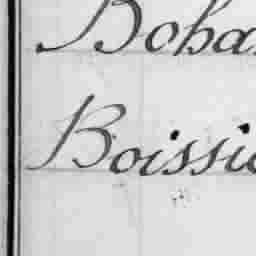 Boha
Boissie